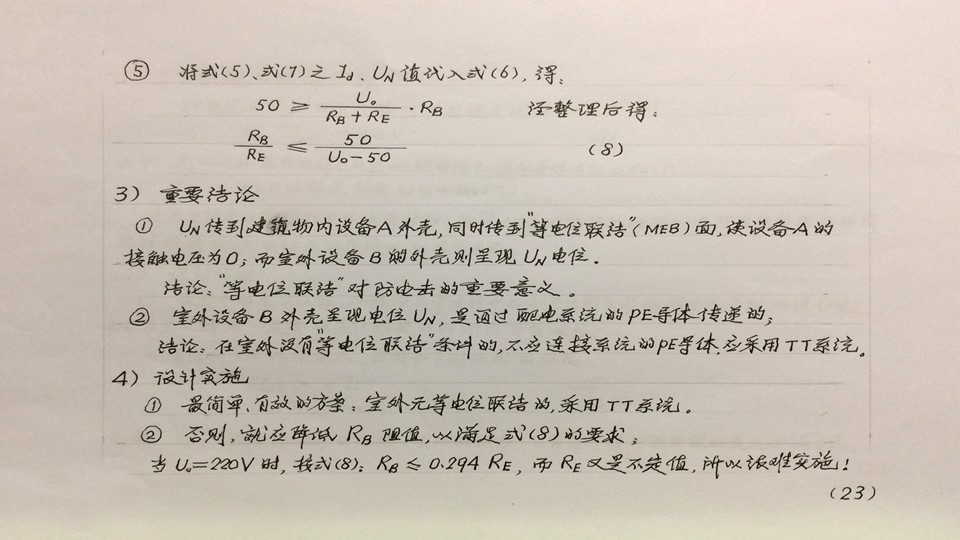 ⑤ 将式(5)、式(7)之 Id、UN 值代入式(6),得:
50 ≥ U₀/(RB + RE) · RB 经整理后得:
RB/RE ≤ 50/(U₀-50) (8)
3) 重要结论
① UN 传到建筑物内设备A外壳,同时传到"等电位联结"(MEB)面,使设备A的
接触电压为0;而室外设备B的外壳则呈现UN电位.
结论:"等电位联结"对防电击的重要意义。
② 室外设备B外壳呈现电位UN,是通过配电系统的PE导体传递的;
结论:在室外没有"等电位联结"条件的,不应连接系统的PE导体.应采用TT系统。
4) 设计实施
① 最简单、有效的方案:室外无等电位联结的,采用TT系统。
② 否则,就应降低RB阻值,以满足式(8)的要求;
当U₀=220V时,按式(8):RB ≤ 0.294 RE,而RE又是不定值,所以很难实施!
(23)